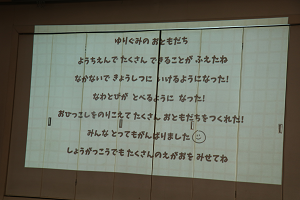 ゆりぐみの おともだち
ようちえんで たくさん できることが ふえたね
なかないで きょうしつに いけるようになった!
なわとびが とべるように なった!
おひっこしをのりこえて たくさん おともだちをつくれた!
みんな とってもがんばりました
しょうがっこうでも たくさんのえがおを みせてね